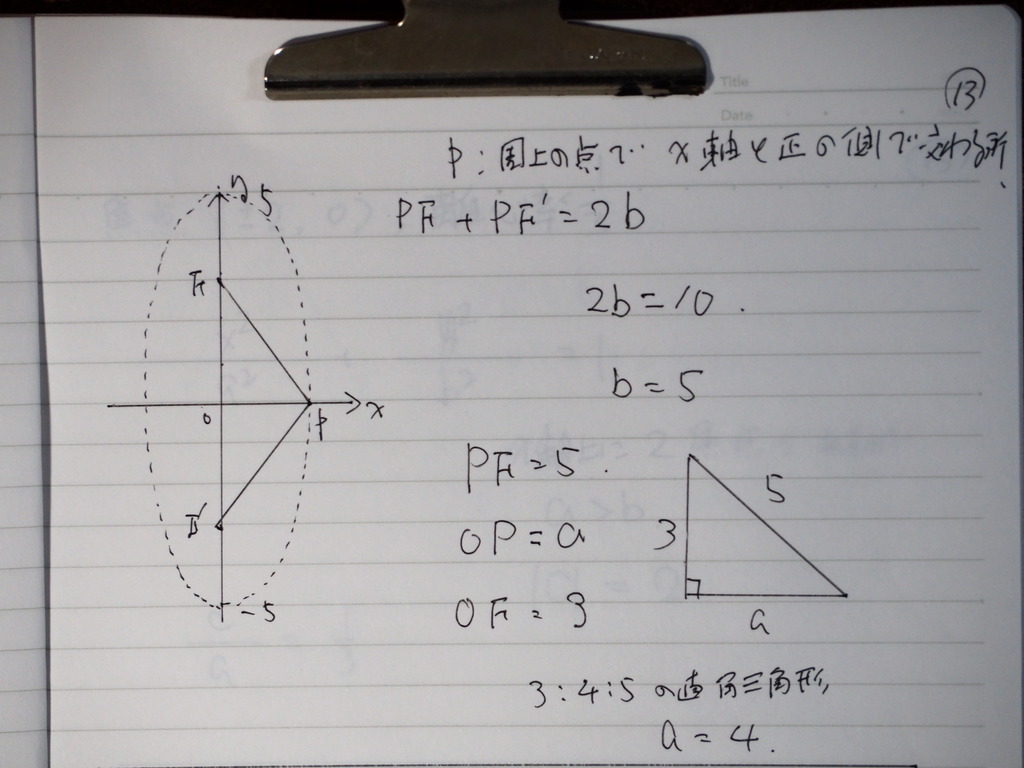 Title
Date
⑬
P:周上の点で x軸と正の側で交わる所.
PF + PF' = 2b
2b = 10 .
b = 5
PF = 5 .
OP = a
OF = 3
y
5
F
O
P
x
F'
-5
3
5
a
3:4:5の直角三角形,
a = 4.